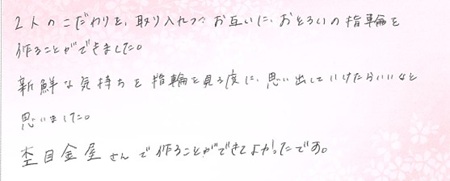 2人のこだわりを、取り入れつつお互いに、おそろいの指輪を
作ることができました。
新鮮な気持ちを指輪を見る度に、思い出していけたらいいなと
思いました。
杢目金屋さんで作ることができてよかったです。